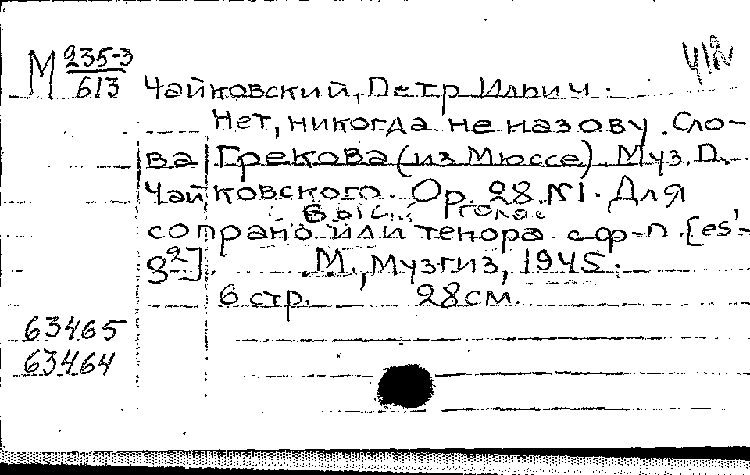 М 235-3
613
Чайковский, Петр Ильич.
Нет, никогда не назову. Сло-
ва Грекова (из Мюссе). Муз. П.
Чайковского. Ор. 28 №1. Для
высок. голос
сопрано или тенора с ф-п. [es'-
g²].    М., Музгиз, 1945.
6 стр.    28 см.
63465
63464